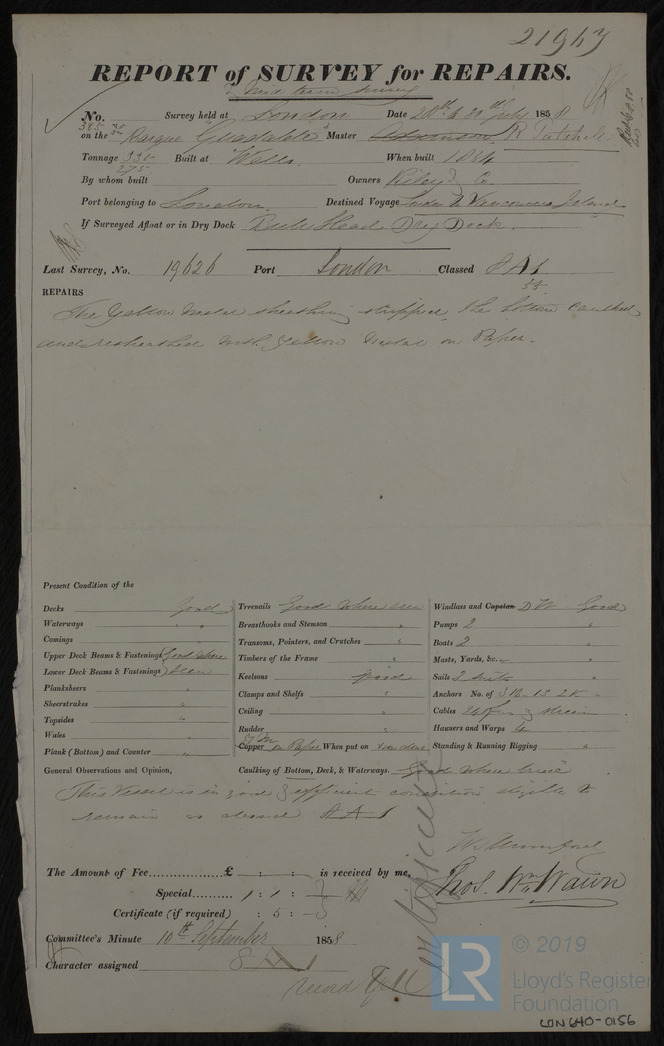 21963
REPORT of SURVEY for REPAIRS.
No. Survey held at London Date 28th & 30th July 1858
on the Barque "Guadalete" Master R
Tonnage 335 Built at Wells When built 1854
275
By whom built Owners Riley & Co
Port belonging to London Destined Voyage London to Vancouvers Island
If Surveyed Afloat or in Dry Dock Dry Dock.
Last Survey, No. 19626 Port London Classed 8 A 1
REPAIRS
The Yellow Metal sheathing stripped, the bottom caulked
and resheathed with Yellow Metal on Paper.
Present Condition of the
Decks Good
Waterways "
Comings "
Upper Deck Beams & Fastenings Good where
Lower Deck Beams & Fastenings seen
Planksheers "
Sheerstrakes "
Topsides "
Wales "
Plank (Bottom) and Counter "
Treenails Good where seen
Breasthooks and Stemson "
Transoms, Pointers, and Crutches "
Timbers of the Frame "
Keelsons Good
Clamps and Shelfs "
Ceiling "
Rudder "
Y M
Copper on Paper When put on
Windlass and Capstan Good
Pumps 2 "
Boats 2 "
Masts, Yards, &c. "
Sails 2 suits "
Anchors No. of 3 B. 1 S. 2 K "
Cables
Hawsers and Warps "
Standing & Running Rigging "
General Observations and Opinion, Caulking of Bottom, Deck, & Waterways. Good where
This Vessel is in good & efficient condition eligible to
remain as classed 8 A 1
The Amount of Fee £ : : is received by me,
Special 1 : 1 :
Thos. Wm. Wawn
Certificate (if required) : 5 :
Committee's Minute 10th September 1858
Character assigned 8 A 1
© 2019
LR
Lloyd's Register
Foundation
LON640-0156